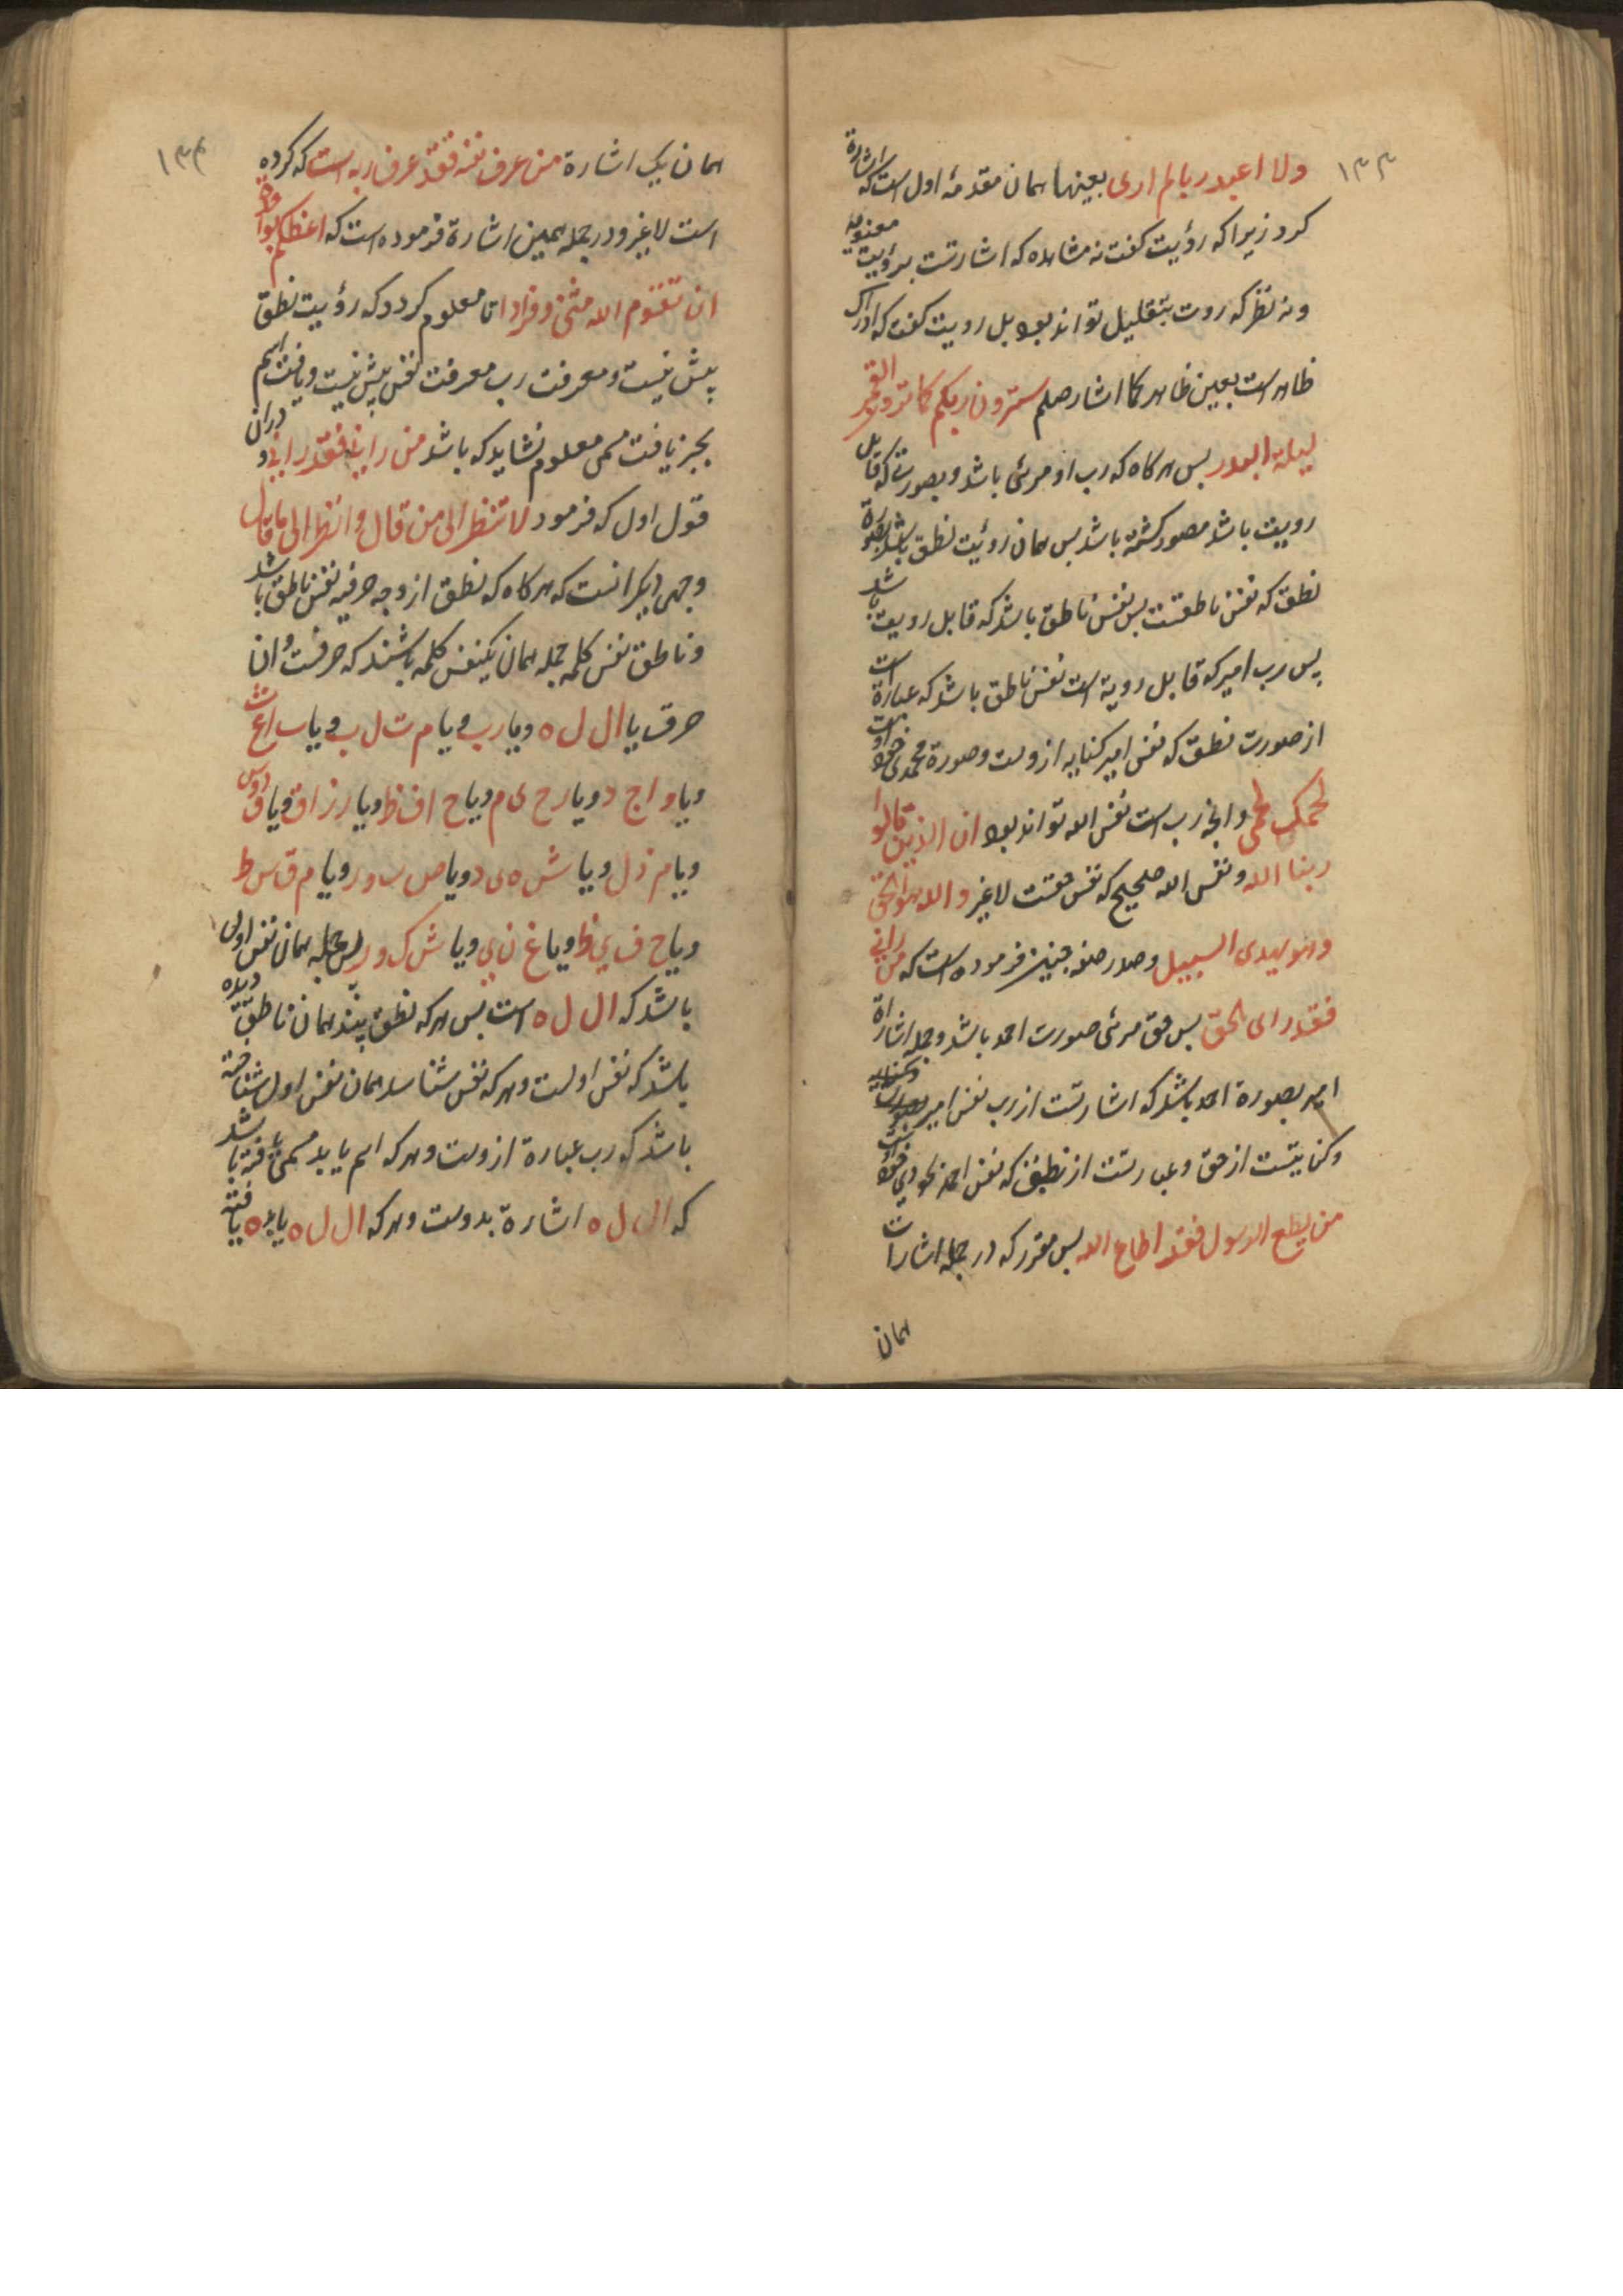 ١٣٣
ولا اعبد ربا لم اری بعینها همان مقدمهٔ اول است که اشارة
کرد زیرا که رؤیت کفت نه مشاهده که اشارتست برؤیت معنویه
و نه نظر که روت بتقلیل تواند بود بل رویت کفت که ادراک
ظاهر است بعین ظاهر کما اشار صلم سترون ربکم کما ترون القمر
لیلة البدر بس هرکاه که رب او مرئی باشد و بصورتی که قابل
رویت باشد مصور کشته باشد بس همان رؤیت نطق باشد بصورة
نطق که نفس ناطقست بس نفس ناطق باشد که قابل رویت باشد
پس رب امیر که قابل رویة است نفس ناطق باشد که عبارة است
از صورت نطق که نفس امیر کنایه ازوست وصورة محمدی خود اوست
لحمک لحمی وانجه رب است نفس الله تواند بود ان الذین قالوا
ربنا الله ونفس الله صحیح که نفس حقست لاغیر و الله هو الحق
وهو یهدی السبیل وصدر صفه جنین فرموده است که من رانی
فقد رای الحق بس حق مرئی صورت احمد باشد وجمله اشاراة
امیر بصورة احمد باشد که اشارتست از رب نفس امیر
وکنایتست از حق وعبارتست از نطق که نفس احمد
من یطع الرسول فقد اطاع الله بس مقرر که در جمله اشارات
همان
١٣٤
همان یک اشارة من عرف نفسه فقد عرف ربه است که کرده
است لاغیر ودر جمله همین اشارة فرموده است که اعظکم بواحدة
ان تقوم الله مثنی و فرادا تا معلوم کردد که رؤیت نطق
پیش نیست ومعرفت رب معرفت نفس پیش نیست ویافت اسم
بجز یافت مسمی معلوم نشاید که باشد من رانی فقد رانی و دران
قول اول که فرمود لا تنظر الی من قال وانظر الی ما قال
وجهی دیکر انست که هرکاه که نطق از وجه حرفیه نفس ناطق باشد
وناطق نفس کلمه جمله همان یکنفس کلمه باشند که حرفست و ان
حرف یا ال ل ه ویا رب ویا م ت ل ب ویا ب اع ث
ویا و اج د ویا رح ی م ویا ح اف ظ ویا ر ز اق ویا ق دوس
ویا م ذ ل ویا ش ه ی د ویا ص ب ور ویا م ق س ط
ویا ح ف ی ظ ویا غ ن ی ویا ش ک و ر بس جمله همان نفس اول
باشد که ال ل ه است بس هرکه نطق بیند همان ناطق دیده
باشد که نفس اولست وهرکه نفس شناسد همان نفس اول شناخته
باشد که رب عبارة ازوست وهرکه اسم یابد مسمی یافته باشد
که ال ل ه اشارة بدوست وهرکه ال ل ه یابد ه یافته